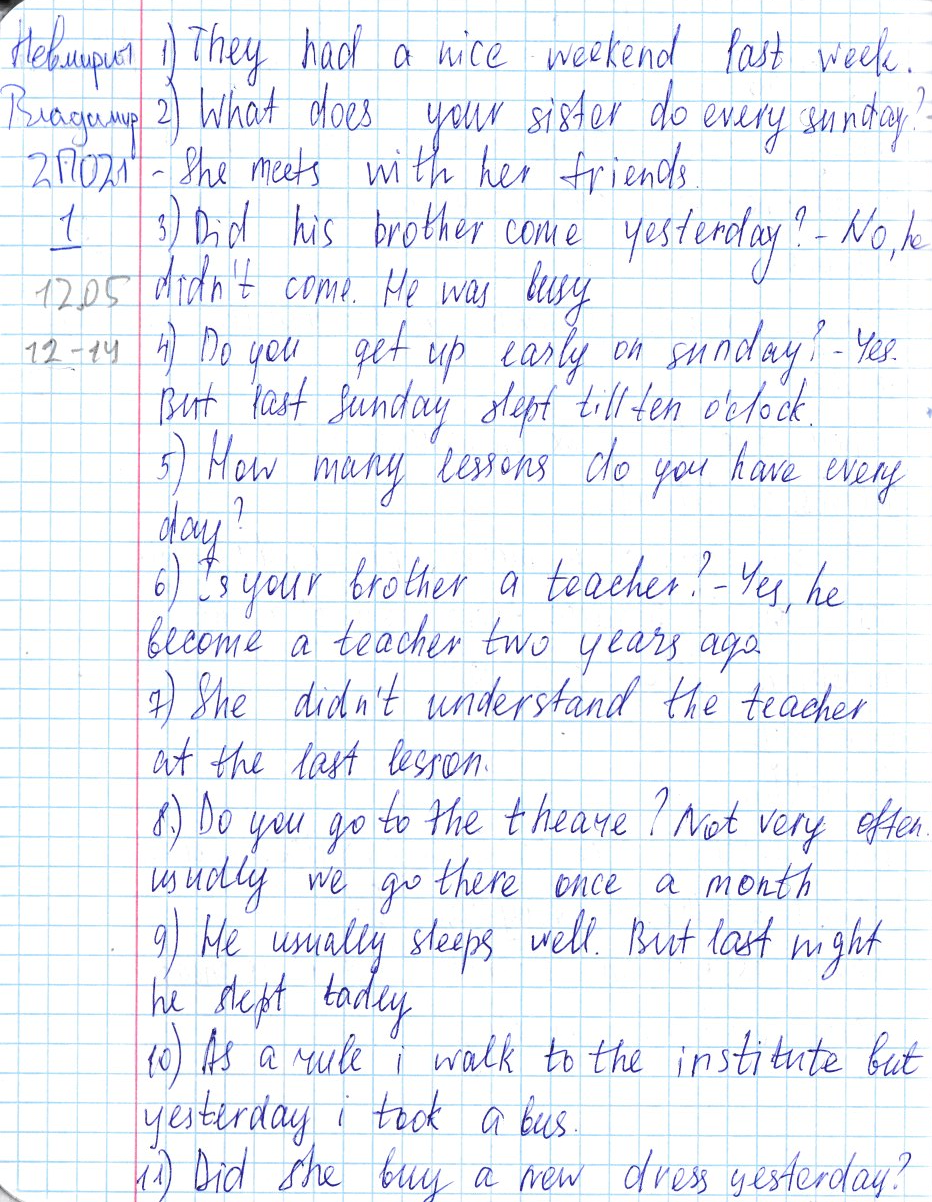 Невмирип
Владимир
2П021
1
12.05
12-14
1) They had a nice weekend last week.
2) What does your sister do every sunday?
- She meets with her friends.
3) Did his brother come yesterday? - No, he
didn't come. He was busy
4) Do you get up early on sunday? - Yes.
But last Sunday slept till ten o'clock.
5) How many lessons do you have every
day?
6) Is your brother a teacher? - Yes, he
become a teacher two years ago
7) She didn't understand the teacher
at the last lesson.
8.) Do you go to the theare? Not very often.
usually we go there once a month
9) He usually sleeps well. But last night
he slept tadey
10) As a rule i walk to the institute but
yesterday i took a bus.
11) Did she buy a new dress yesterday?